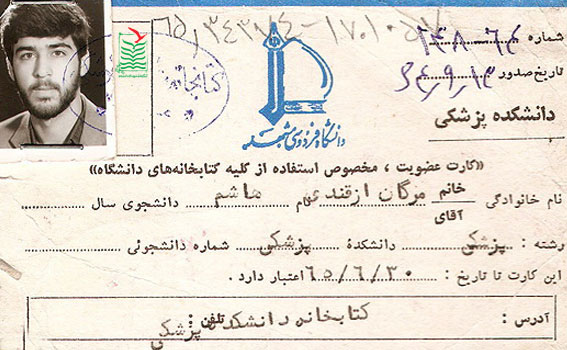 شماره ۲۳۸۰۶۴
تاریخ صدور ۶۴/۹/۱۳
کتابخانه
دانشگاه فردوسی مشهد
دانشکده پزشکی
«کارت عضویت ، مخصوص استفاده از کلیه کتابخانه‌های دانشگاه»
نام خانوادگی خانم آقای مرگان ازقندی نام هاشم دانشجوی سال
رشته : پزشکی دانشکدهٔ پزشکی شماره دانشجوئی :
این کارت تا تاریخ : ۶۵/۶/۳۰ اعتبار دارد .
آدرس : کتابخانه دانشکده پزشکی تلفن :